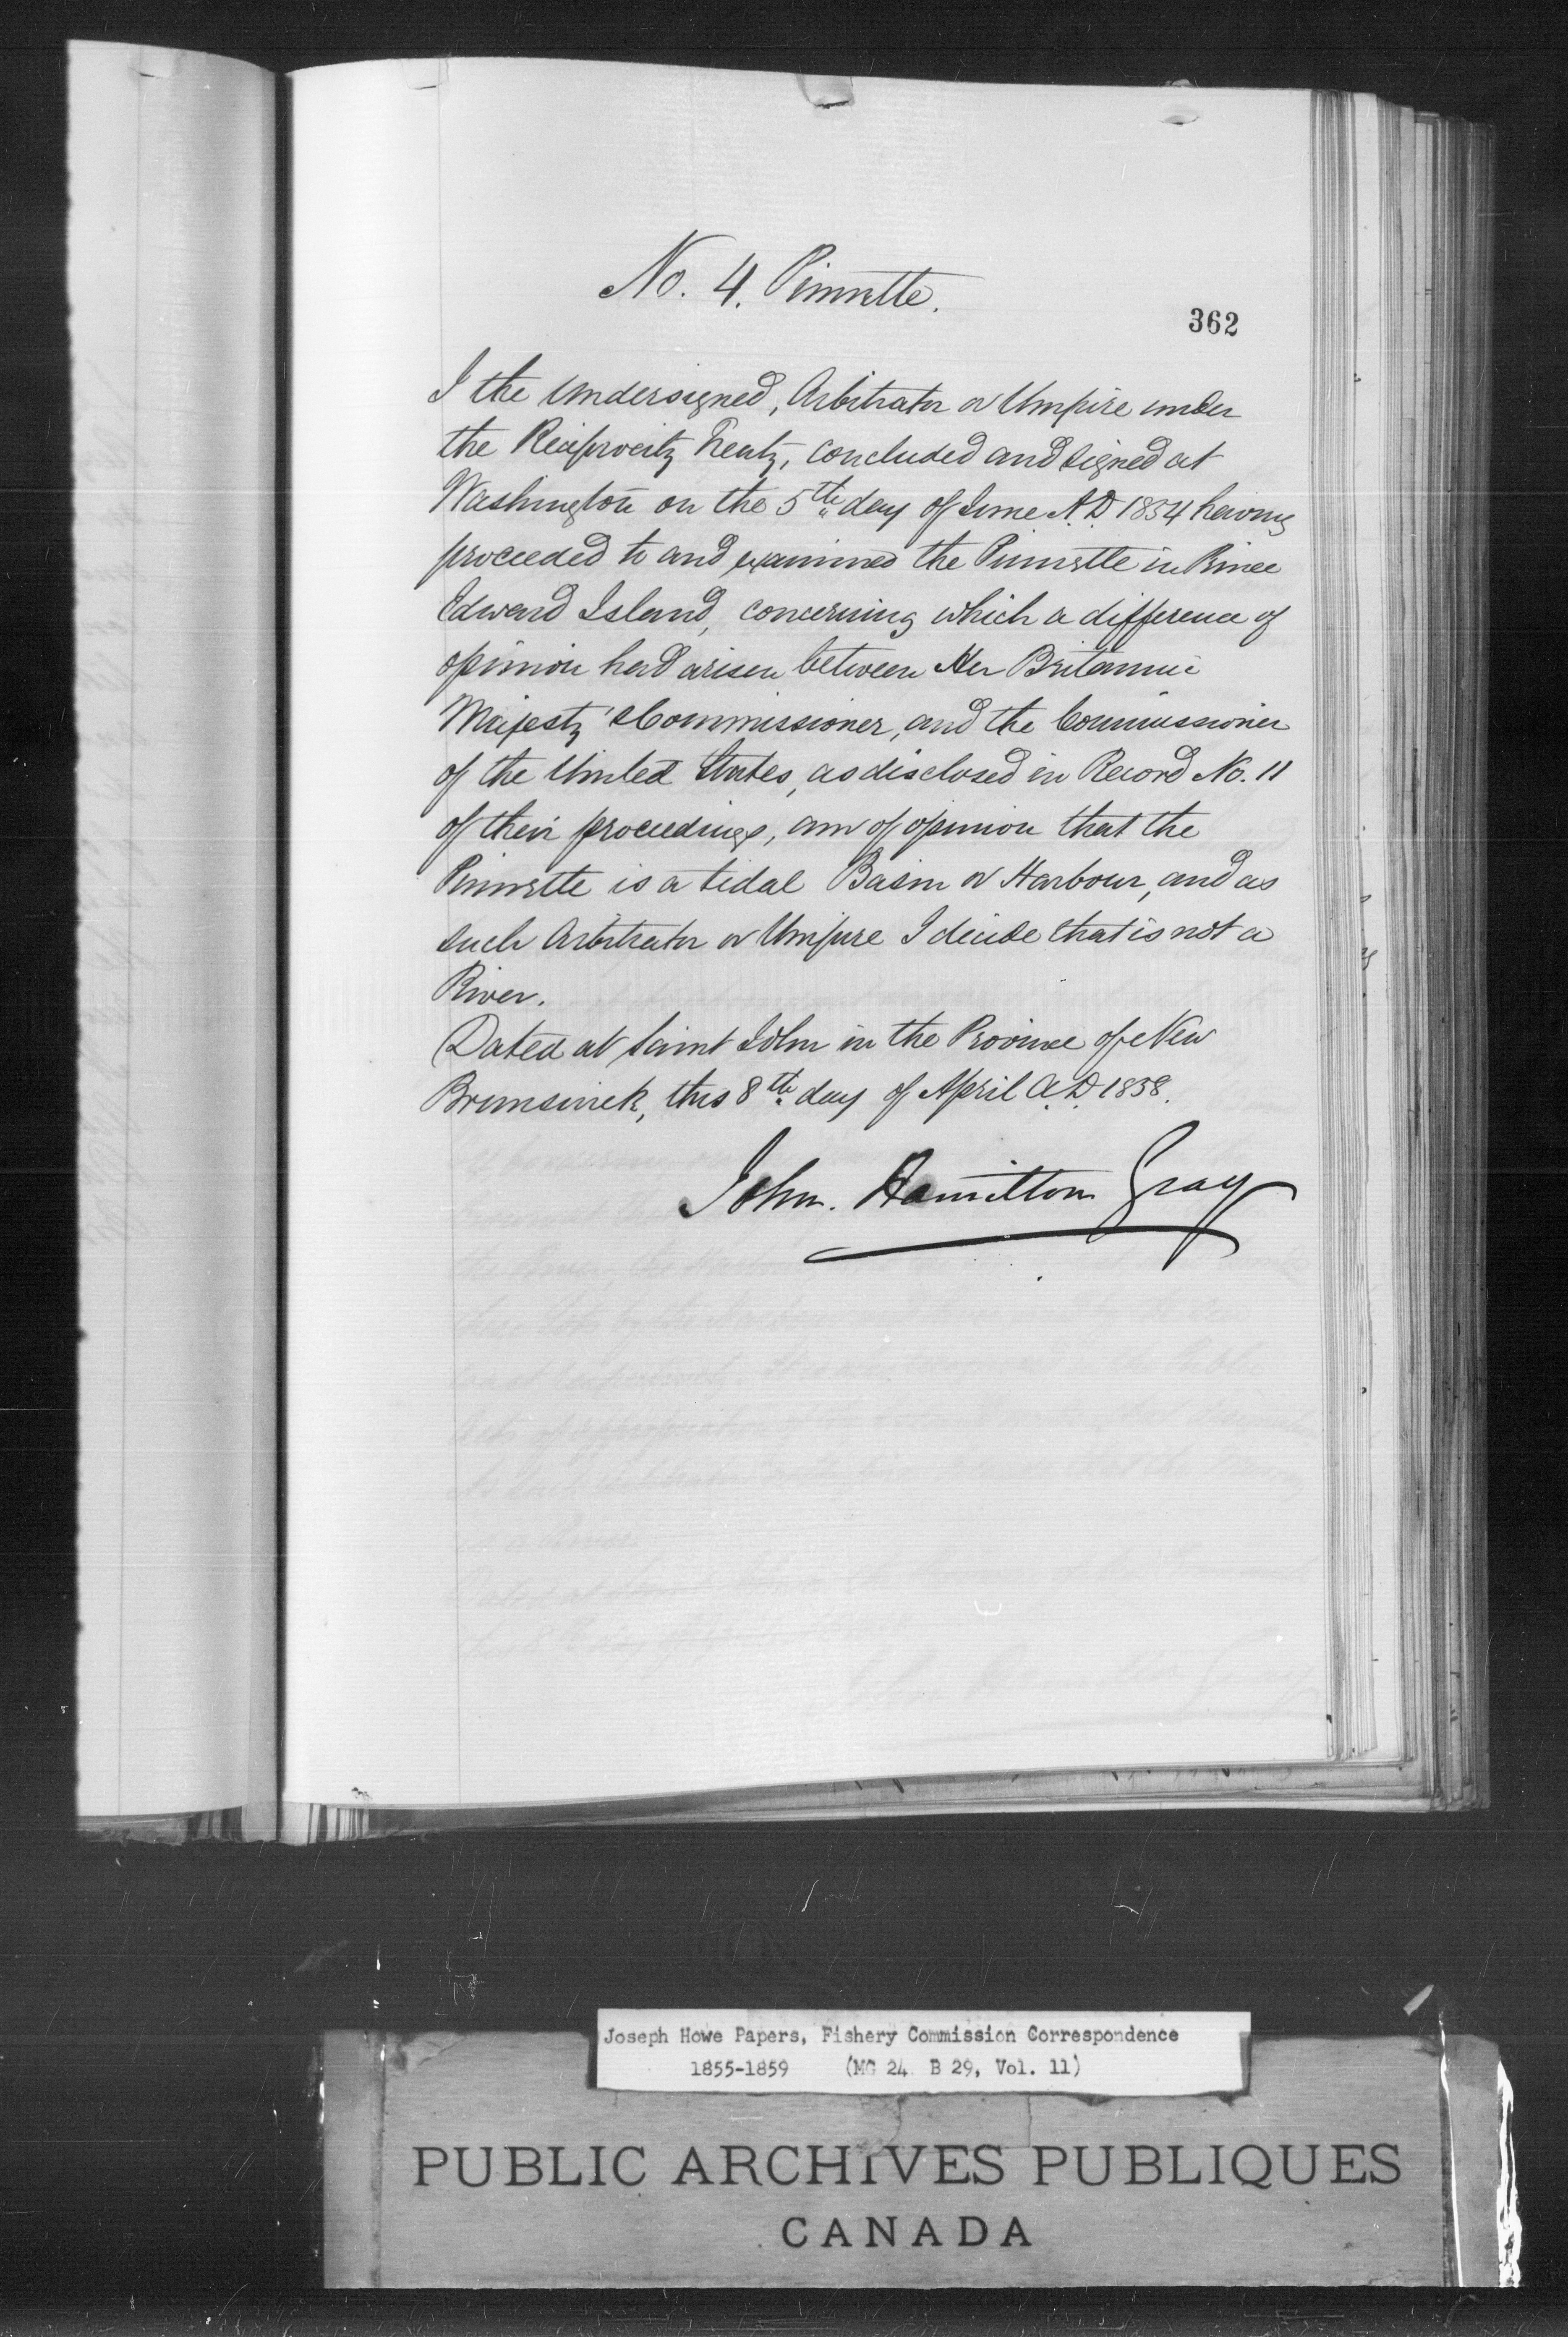 No. 4. Pinnette.
362
I the Undersigned, Arbitrator or Umpire under
the Reciprocity Treaty, concluded and signed at
Washington on the 5th day of June A.D 1854 having
proceeded to and examined the Pinnette in Prince
Edward Island, concerning which a difference of
opinion had arisen between Her Britannic
Majesty's Commissioner, and the Commissioner
of the United States, as disclosed in Record No. 11
of their proceedings, am of opinion that the
Pinnette is a tidal Basin or Harbour, and as
such Arbitrator or Umpire I decide that is not a
River.
Dated at Saint John in the Province of New
Brunswick, this 8th day of April A.D. 1858.
John. Hamilton Gray
Joseph Howe Papers, Fishery Commission Correspondence
1855-1859 (MG 24 B 29, Vol. 11)
PUBLIC ARCHIVES PUBLIQUES
CANADA